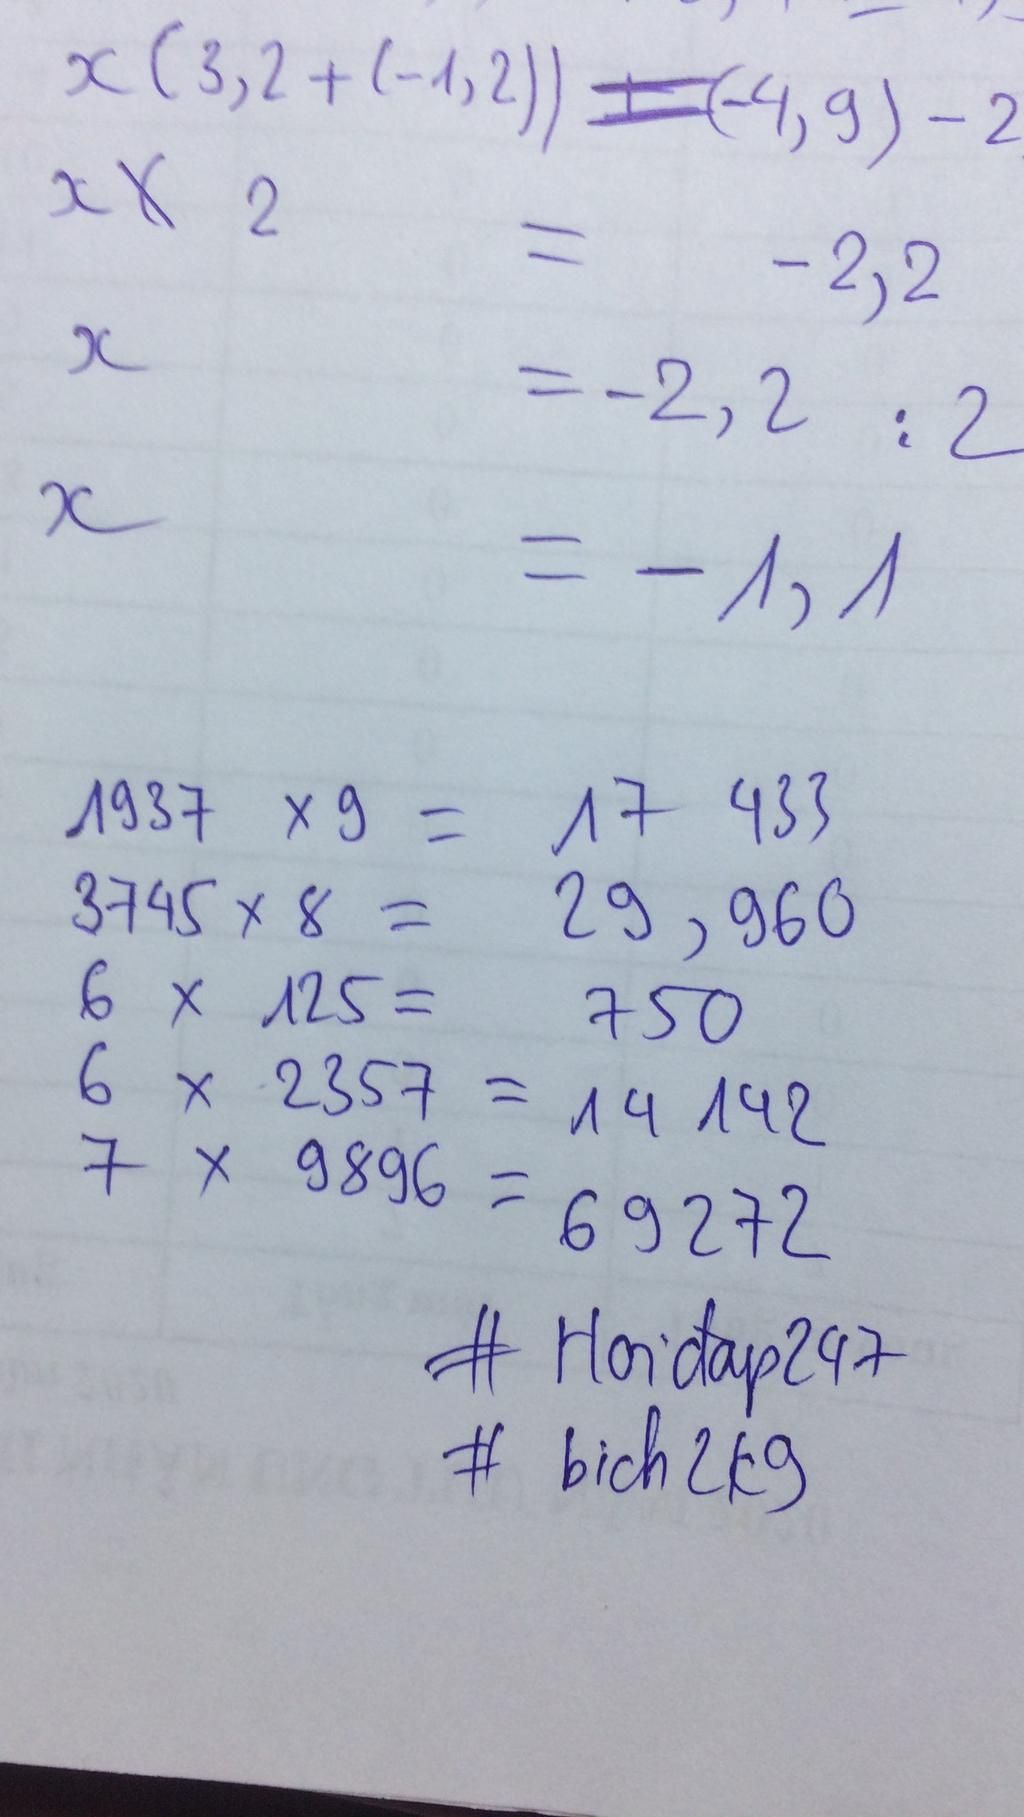 x(3,2+(-1,2)) = (-4,9) - 2
x x 2 = -2,2
x = -2,2 : 2
x = -1,1
1937 x 9 = 17 433
3745 x 8 = 29,960
6 x 125 = 750
6 x 2357 = 14 142
7 x 9896 = 69272
# Hoidap247
# bich2k9